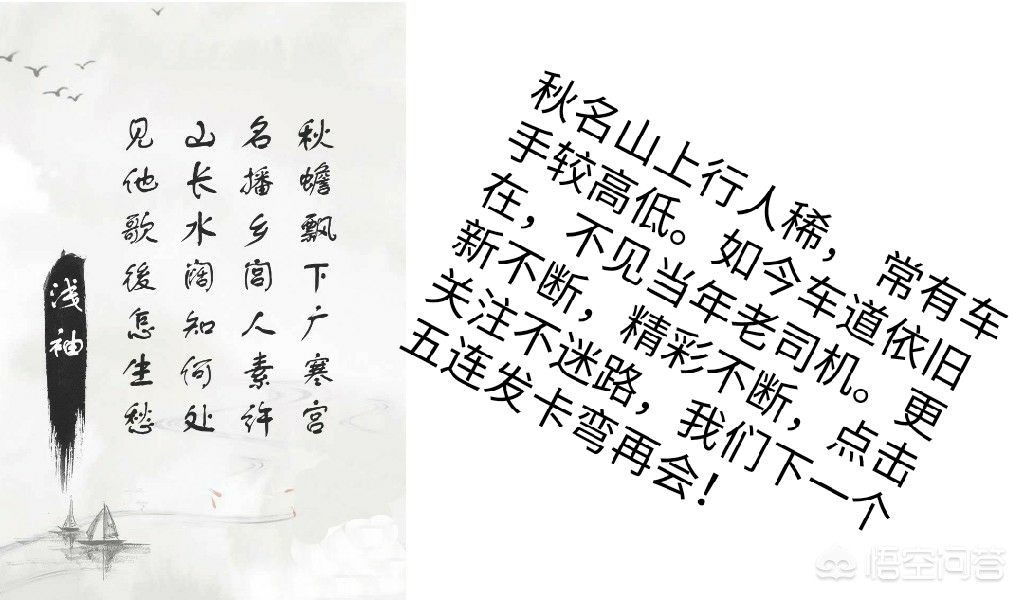 秋蟾飘下广寒宫
名播乡闾人素许
山长水阔知何处
见他歌後怎生愁
浅袖
秋名山上行人稀，常有车
手较高低。如今车道依旧
在，不见当年老司机。更
新不断，精彩不断，点击
关注不迷路，我们下一个
五连发卡弯再会！
悟空问答